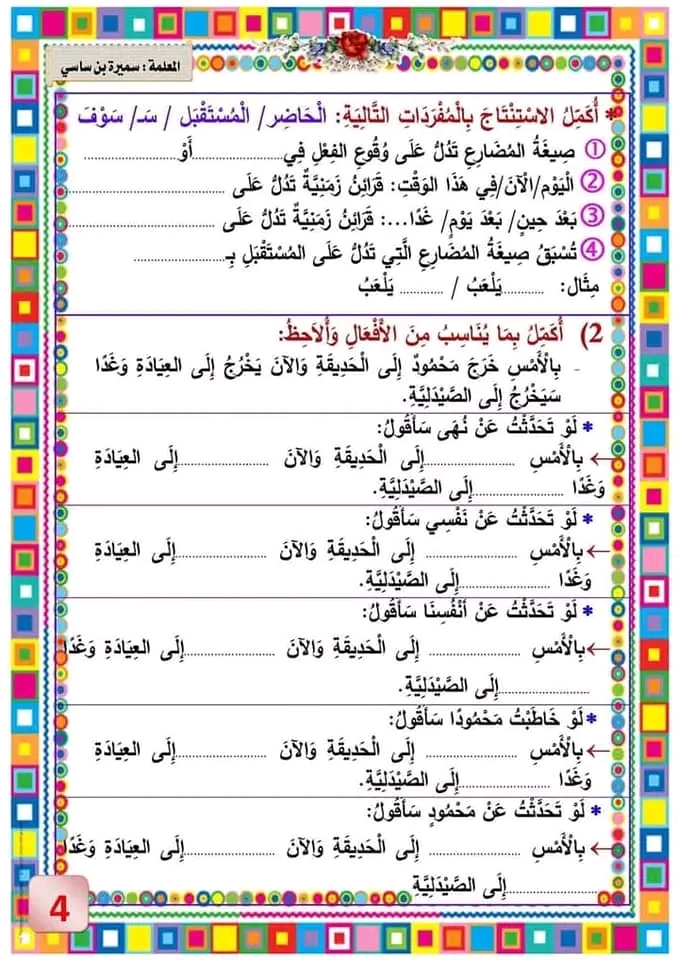 المعلمة : سميرة بن ساسي
* أُكَمِّلُ الاسْتِنْتَاجَ بِالْمُفْرَدَاتِ التَّالِيَةِ: الْحَاضِر/ الْمُسْتَقْبَل / سَـ/ سَوْفَ
① صِيغَةُ المُضَارِعِ تَدُلُّ عَلَى وُقُوعِ الفِعْلِ فِي.................أَوْ.................
② الْيَوْم/الْآنَ/فِي هَذَا الوَقْتِ: قَرَائِنُ زَمَنِيَّةٌ تَدُلُّ عَلَى .................
③ بَعْدَ حِينٍ/ بَعْدَ يَوْمٍ/ غَدًا...: قَرَائِنُ زَمَنِيَّةٌ تَدُلُّ عَلَى .................
④ تُسْبَقُ صِيغَةُ المُضَارِعِ الَّتِي تَدُلُّ عَلَى المُسْتَقْبَلِ بِـ.................
مِثَال: ..........يَلْعَبُ / .......... يَلْعَبُ
2) أُكَمِّلُ بِمَا يُنَاسِبُ مِنَ الأَفْعَالِ وَأُلَاحِظُ:
- بِالْأَمْسِ خَرَجَ مَحْمُودٌ إِلَى الْحَدِيقَةِ وَالآنَ يَخْرُجُ إِلَى العِيَادَةِ وَغَدًا
سَيَخْرُجُ إِلَى الصَّيْدَلِيَّةِ.
* لَوْ تَحَدَّثْتُ عَنْ نُهَى سَأَقُولُ:
← بِالْأَمْسِ .................إِلَى الْحَدِيقَةِ وَالآنَ .................إِلَى العِيَادَةِ
وَغَدًا .................إِلَى الصَّيْدَلِيَّةِ.
* لَوْ تَحَدَّثْتُ عَنْ نَفْسِي سَأَقُولُ:
← بِالْأَمْسِ ................. إِلَى الْحَدِيقَةِ وَالآنَ .................إِلَى العِيَادَةِ
وَغَدًا .................إِلَى الصَّيْدَلِيَّةِ.
* لَوْ تَحَدَّثْتُ عَنْ أَنْفُسِنَا سَأَقُولُ:
← بِالْأَمْسِ ................. إِلَى الْحَدِيقَةِ وَالآنَ .................إِلَى العِيَادَةِ وَغَدًا
.................إِلَى الصَّيْدَلِيَّةِ.
* لَوْ خَاطَبْتُ مَحْمُودًا سَأَقُولُ:
← بِالْأَمْسِ ................. إِلَى الْحَدِيقَةِ وَالآنَ .................إِلَى العِيَادَةِ
وَغَدًا .................إِلَى الصَّيْدَلِيَّةِ.
* لَوْ تَحَدَّثْتُ عَنْ مَحْمُودٍ سَأَقُولُ:
← بِالْأَمْسِ ................. إِلَى الْحَدِيقَةِ وَالآنَ .................إِلَى العِيَادَةِ وَغَدًا
.................إِلَى الصَّيْدَلِيَّةِ
4